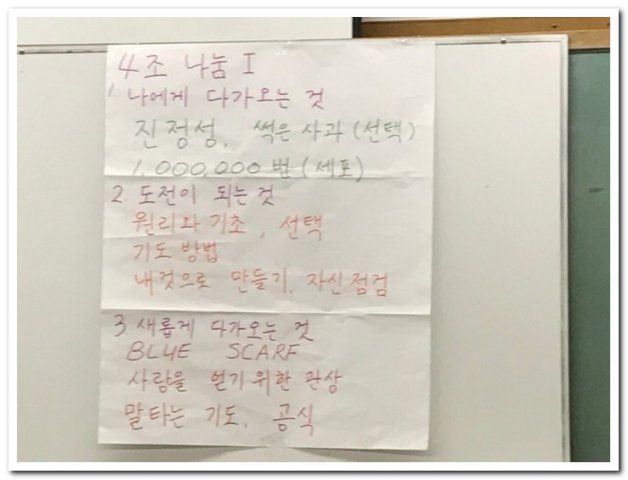 4조 나눔 I
1. 나에게 다가오는 것
진정성, 썩은 사과 (선택)
1,000,000 번 (세포)
2. 도전이 되는 것
원리와 기초, 선택
기도 방법
내것으로 만들기, 자신점검
3. 새롭게 다가오는 것
BLUE SCARF
사랑을 얻기 위한 관상
말타는 기도, 공식